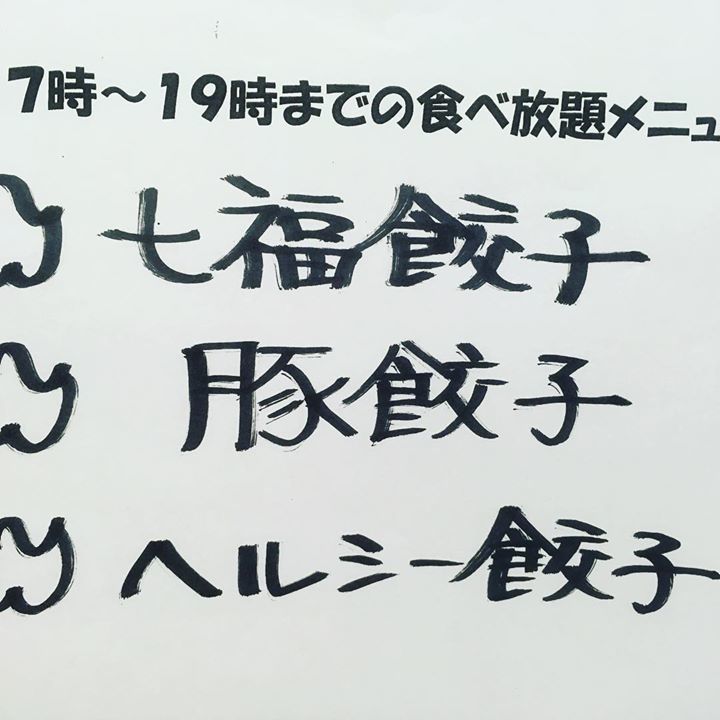 7時～19時までの食べ放題メニュ
七福餃子
豚餃子
ヘルシー餃子